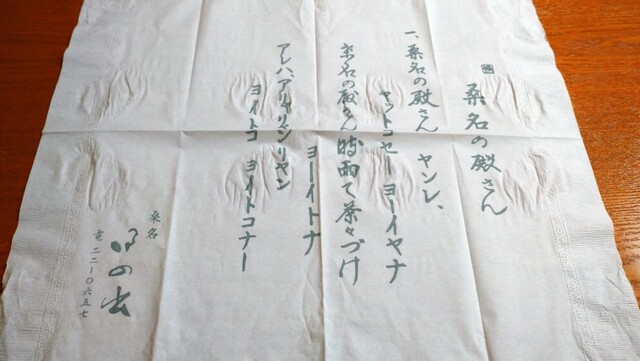 桑名の殿さん
一、桑名の殿さん ヤンレ、
ヤットコセーヨーイヤナ
桑名の殿さん時雨で茶々づけ
ヨーイトナ
アレハ、アリャリンリャン
ヨイトコ ヨイトコナー
桑名
日の出
電 二二-〇六五七